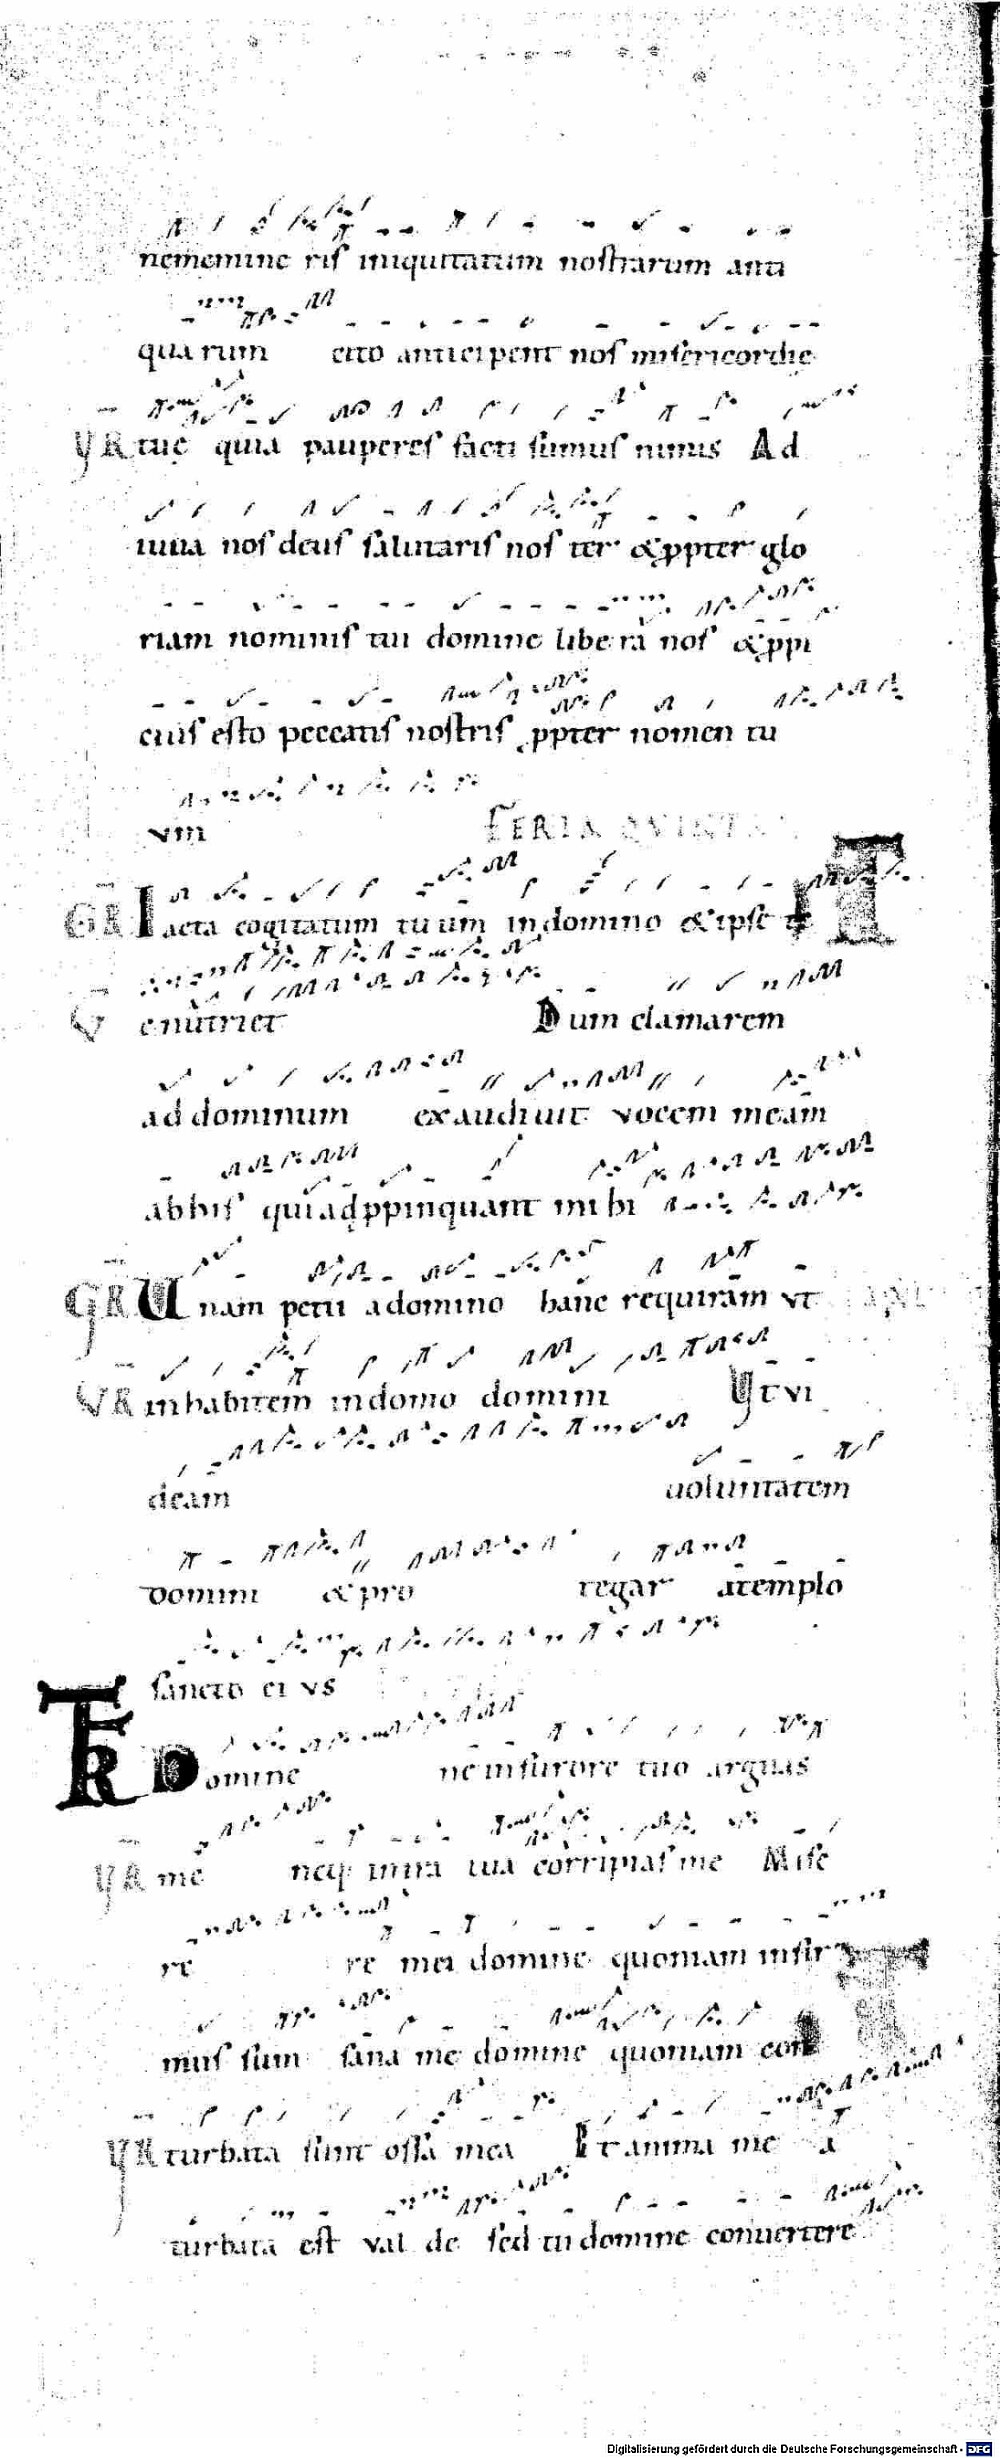 nememine ris iniquitatum nostrarum anti
qua rum cito anticipent nos misericordię
VR tuę quia pauperes facti sumus nimis Ad
iuua nos deus salutaris nos ter & ppter glo
riam nominis tui domine libe ra nos & ppi
cius esto peccatis nostris ppter nomen tu
um FERIA QVINTA
GR Iacta cogitatum tu um in domino & ipse te
V enutriet Dum clamarem
ad dominum exaudiuit vocem meam
ab his qui adppinquant mihi
GR Unam petii a domino hanc requiram vt
VR inhabitem in domo domini Vt vi
deam uoluntatem
domini & pro tegar a templo
sancto ei us
TR Domine ne in furore tuo arguas
VR me neq; in ira tua corripias me Mise
re re mei domine quoniam infir
mus sum sana me domine quoniam con
VR turbata sunt ossa mea Et anima me a
turbata est val de sed tu domine conuertere
Digitalisierung gefördert durch die Deutsche Forschungsgemeinschaft - DFG